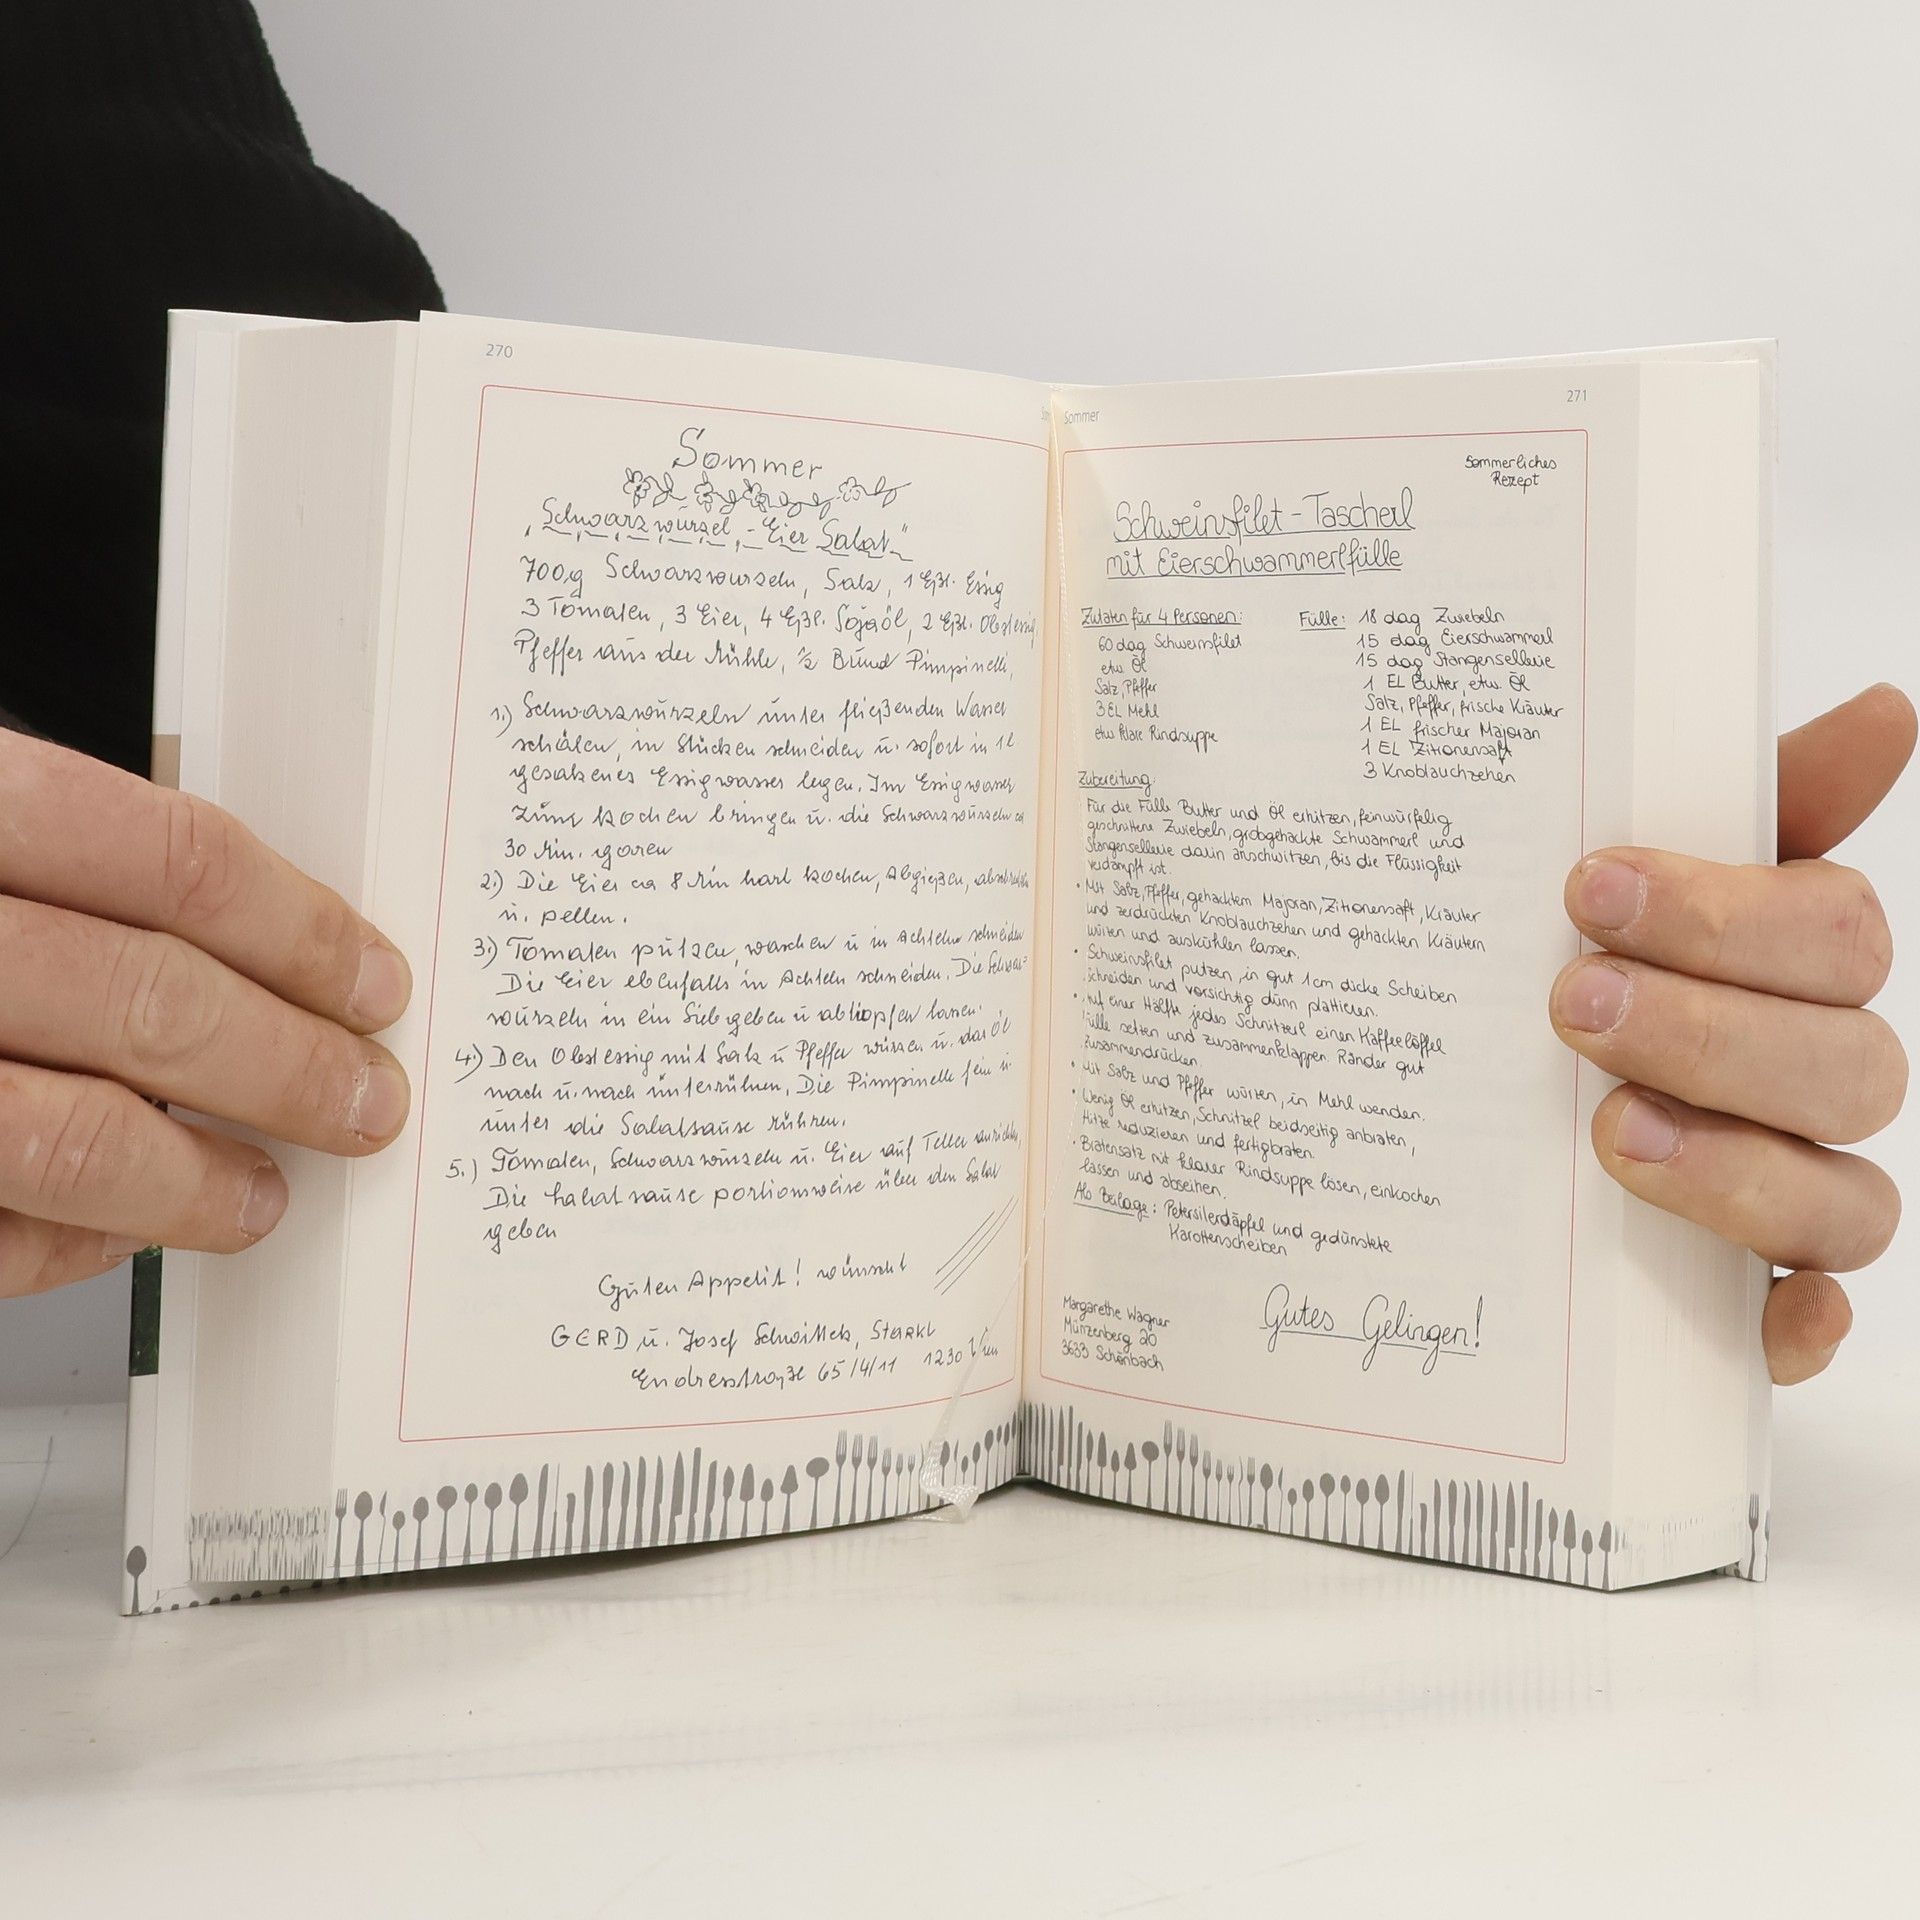 270
Sommer
„Schwarzwurzel-Eier Salat"
700g Schwarzwurzeln, Salz, 1 Eßl. Essig
3 Tomaten, 3 Eier, 4 Eßl. Sojaöl, 2 Eßl. Obstessig,
Pfeffer aus der Mühle, ½ Bund Pimpinelle,
1.) Schwarzwürzeln unter fließenden Wasser
schälen, in Stücken schneiden u. sofort in 1l
gesalzenes Essigwasser legen. Im Essigwasser
zum kochen bringen u. die Schwarzwürzeln ca
30 Min. garen
2.) Die Eier ca 8 Min hart kochen, abgießen,
u. pellen.
3.) Tomaten putzen, waschen u in Achteln schneiden
Die Eier ebenfalls in Achteln schneiden. Die Schwar=
würzeln in ein Sieb geben u abtropfen lassen.
4.) Den Obstessig mit Salz u Pfeffer würzen u. das Öl
nach u. nach unterrühren. Die Pimpinelle fein u.
unter die Salatsauce rühren.
5.) Tomaten, Schwarzwürzeln u. Eier auf Teller anrichten,
Die Salatsauce portionsweise über den Salat
geben
Guten Appetit! wünscht
GERD u. Josef
Endresstraße 65/4/11 1230 Wien
Sommer
271
Sommerliches
Rezept
Schweinsfilet-Tascherl
mit Eierschwammerlfülle
Zutaten für 4 Personen:
60 dag Schweinsfilet
etw. Öl
Salz, Pfeffer
3 EL Mehl
etw. klare Rindsuppe
Fülle: 18 dag Zwiebeln
15 dag Eierschwammerl
15 dag Stangensellerie
1 EL Butter, etw. Öl
Salz, Pfeffer, frische Kräuter
1 EL frischer Majoran
1 EL Zitronensaft
3 Knoblauchzehen
Zubereitung:
Für die Fülle Butter und Öl erhitzen, feinwürfelig
geschnittene Zwiebeln, grobgehackte Schwammerl und
Stangensellerie darin anschwitzen, bis die Flüssigkeit
verdampft ist.
• Mit Salz, Pfeffer, gehacktem Majoran, Zitronensaft, Kräuter
und zerdrückten Knoblauchzehen und gehackten Kräutern
würzen und auskühlen lassen.
• Schweinsfilet putzen, in gut 1cm dicke Scheiben
schneiden und vorsichtig dünn plattieren.
• Auf einer Hälfte jedes Schnitzerl einen Kaffeelöffel
Fülle setzen und zusammenklappen. Ränder gut
zusammendrücken.
• Mit Salz und Pfeffer würzen, in Mehl wenden.
• Wenig Öl erhitzen, Schnitzel beidseitig anbraten,
Hitze reduzieren und fertigbraten.
• Bratensatz mit klarer Rindsuppe lösen, einkochen
lassen und abseihen.
Als Beilage: Petersilerdäpfel und gedünstete
Karottenscheiben
Gutes Gelingen!
Margarethe Wagner
Münzenberg 20
3633 Schönbach